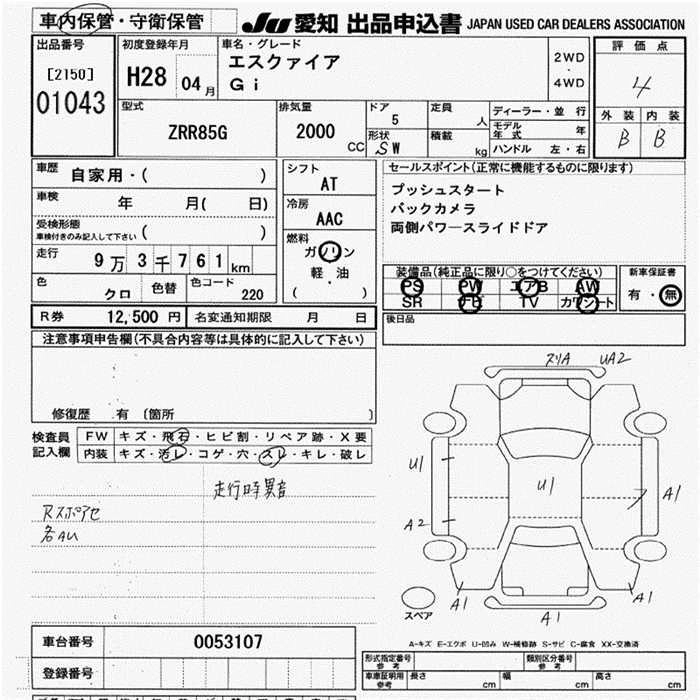 車内保管・守衛保管
JU 愛知 出品申込書 JAPAN USED CAR DEALERS ASSOCIATION
出品番号
[2150]
01043
初度登録年月
H28 04月
車名・グレード
エスクァイア
Gi
2WD
・
4WD
評価点
4
外装 内装
B B
型式
ZRR85G
排気量
2000 CC
ドア
5
形状
SW
定員
人
積載
kg
ディーラー・並行
モデル年式 年
ハンドル 左・右
車歴 自家用・( )
車検 年 月( 日)
受検形態
車検付きのみ記入して下さい ( )
走行 9万3千761km
色 クロ 色替 色コード 220
シフト
AT
冷房
AAC
燃料
ガソリン
軽・油
( )
セールスポイント(正常に機能するものに限ります)
プッシュスタート
バックカメラ
両側パワースライドドア
装備品(純正品に限り○をつけてください)
PS PW エアB AW
SR TV カワシート
新車保証書
有・無
後日品
R券 12,500円 名変通知期限 月 日
注意事項申告欄(不具合内容等は具体的に記入して下さい)
修復歴 有 〔箇所 〕
検査員
記入欄
FW キズ・飛石・ヒビ割・リペア跡・X要
内装 キズ・汚レ・コゲ・穴・スレ・キレ・破レ
走行時異音
各AU
スリA UA2
U1
U1
A1
A2
A1
A1
A1
スペア
A-キズ E-エクボ U-凹み W-補修跡 S-サビ C-腐食 XX-交換済
車台番号 0053107
登録番号
形式指定番号
参考
類別区分番号
参考
車庫証明用
参考
長さ cm 幅 cm 高さ cm